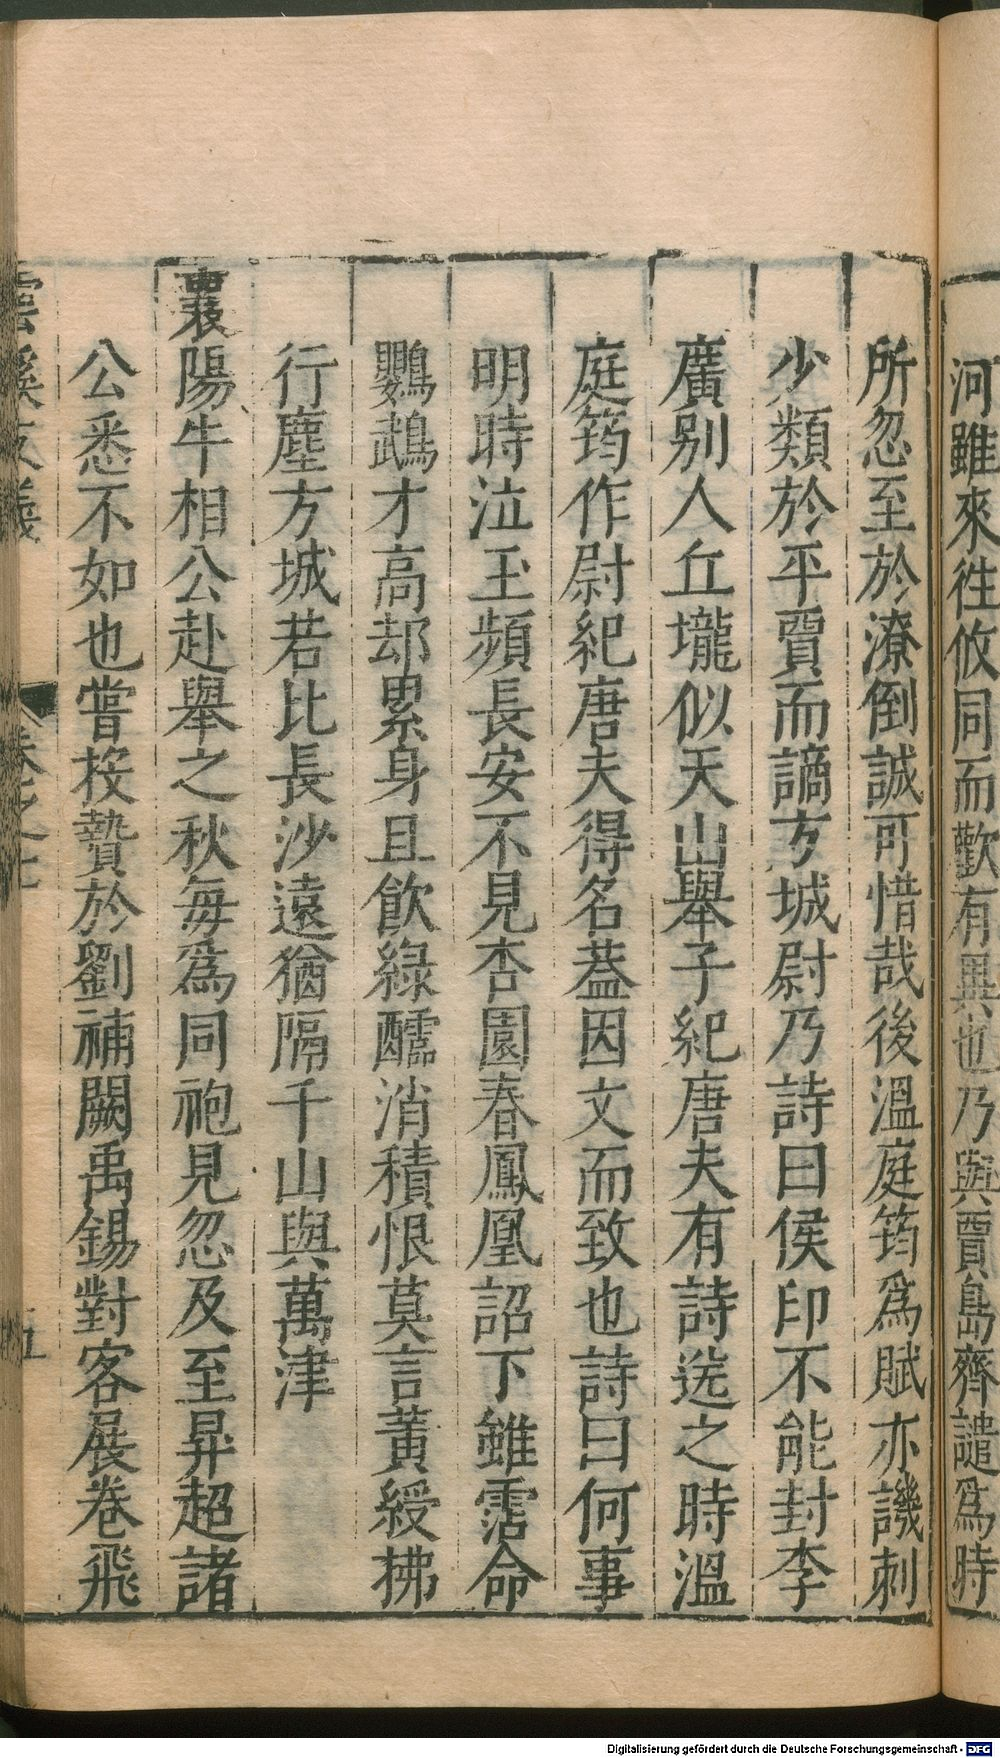 河雖來往攸同而歡有異也乃與賈島齊譴爲時
所忽至於潦倒誠可惜哉後溫庭筠爲賦亦譏刺
少類於平賈而謫方城尉乃詩曰侯印不能封李
廣别人丘壠似天山舉子紀唐夫有詩送之時溫
庭筠作尉紀唐夫得名葢因文而致也詩曰何事
明時泣玉頻長安不見杏園春鳳凰詔下雖霑命
鸚鵡才高却累身且飲綠醽消積恨莫言黃綬拂
行塵方城若比長沙遠猶隔千山與萬津
襄陽牛相公赴舉之秋每爲同袍見忽及至昇超諸
公悉不如也嘗投贄於劉補闕禹錫對客展卷飛
雲溪友議
卷之七
五
Digitalisierung gefördert durch die Deutsche Forschungsgemeinschaft - DFG